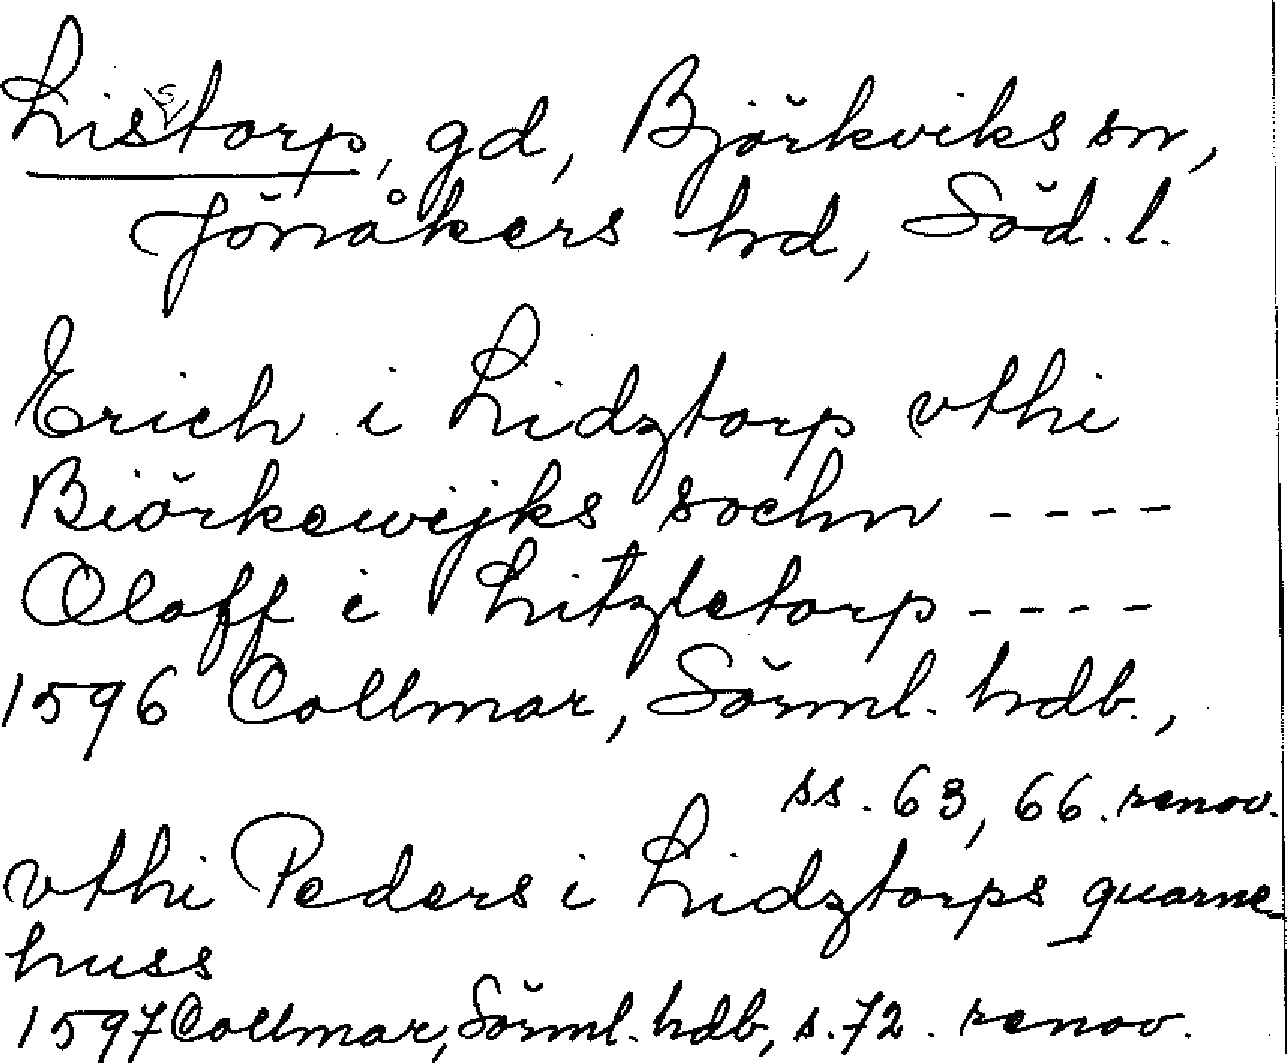 Lisstorp, gd, Björkviks sn,
Jönåkers hd, Söd.l.
Erich i Lidztorp vthi
Biörkewijks sochn ----
Oloff i Litzletorp ----
1596 Collmar, Sörml. hdb.,
ss. 63, 66. renov.
vthi Peders i Lidztorps quarne-
huss
1597 Collmar, Sörml. hdb, s. 72. renov.